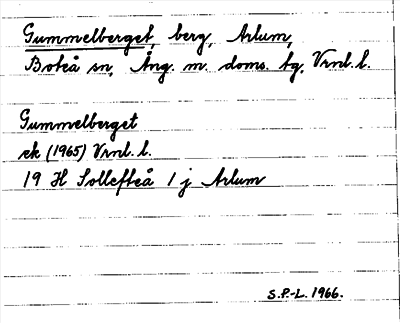 Gummelberget, berg, Arlum,
Boteå sn, Ång. m. doms. tg, Vrnl. l.
Gummelberget
ek (1965) Vrnl. l.
19 H Sollefteå 1 j Arlum
S.P.-L. 1966.